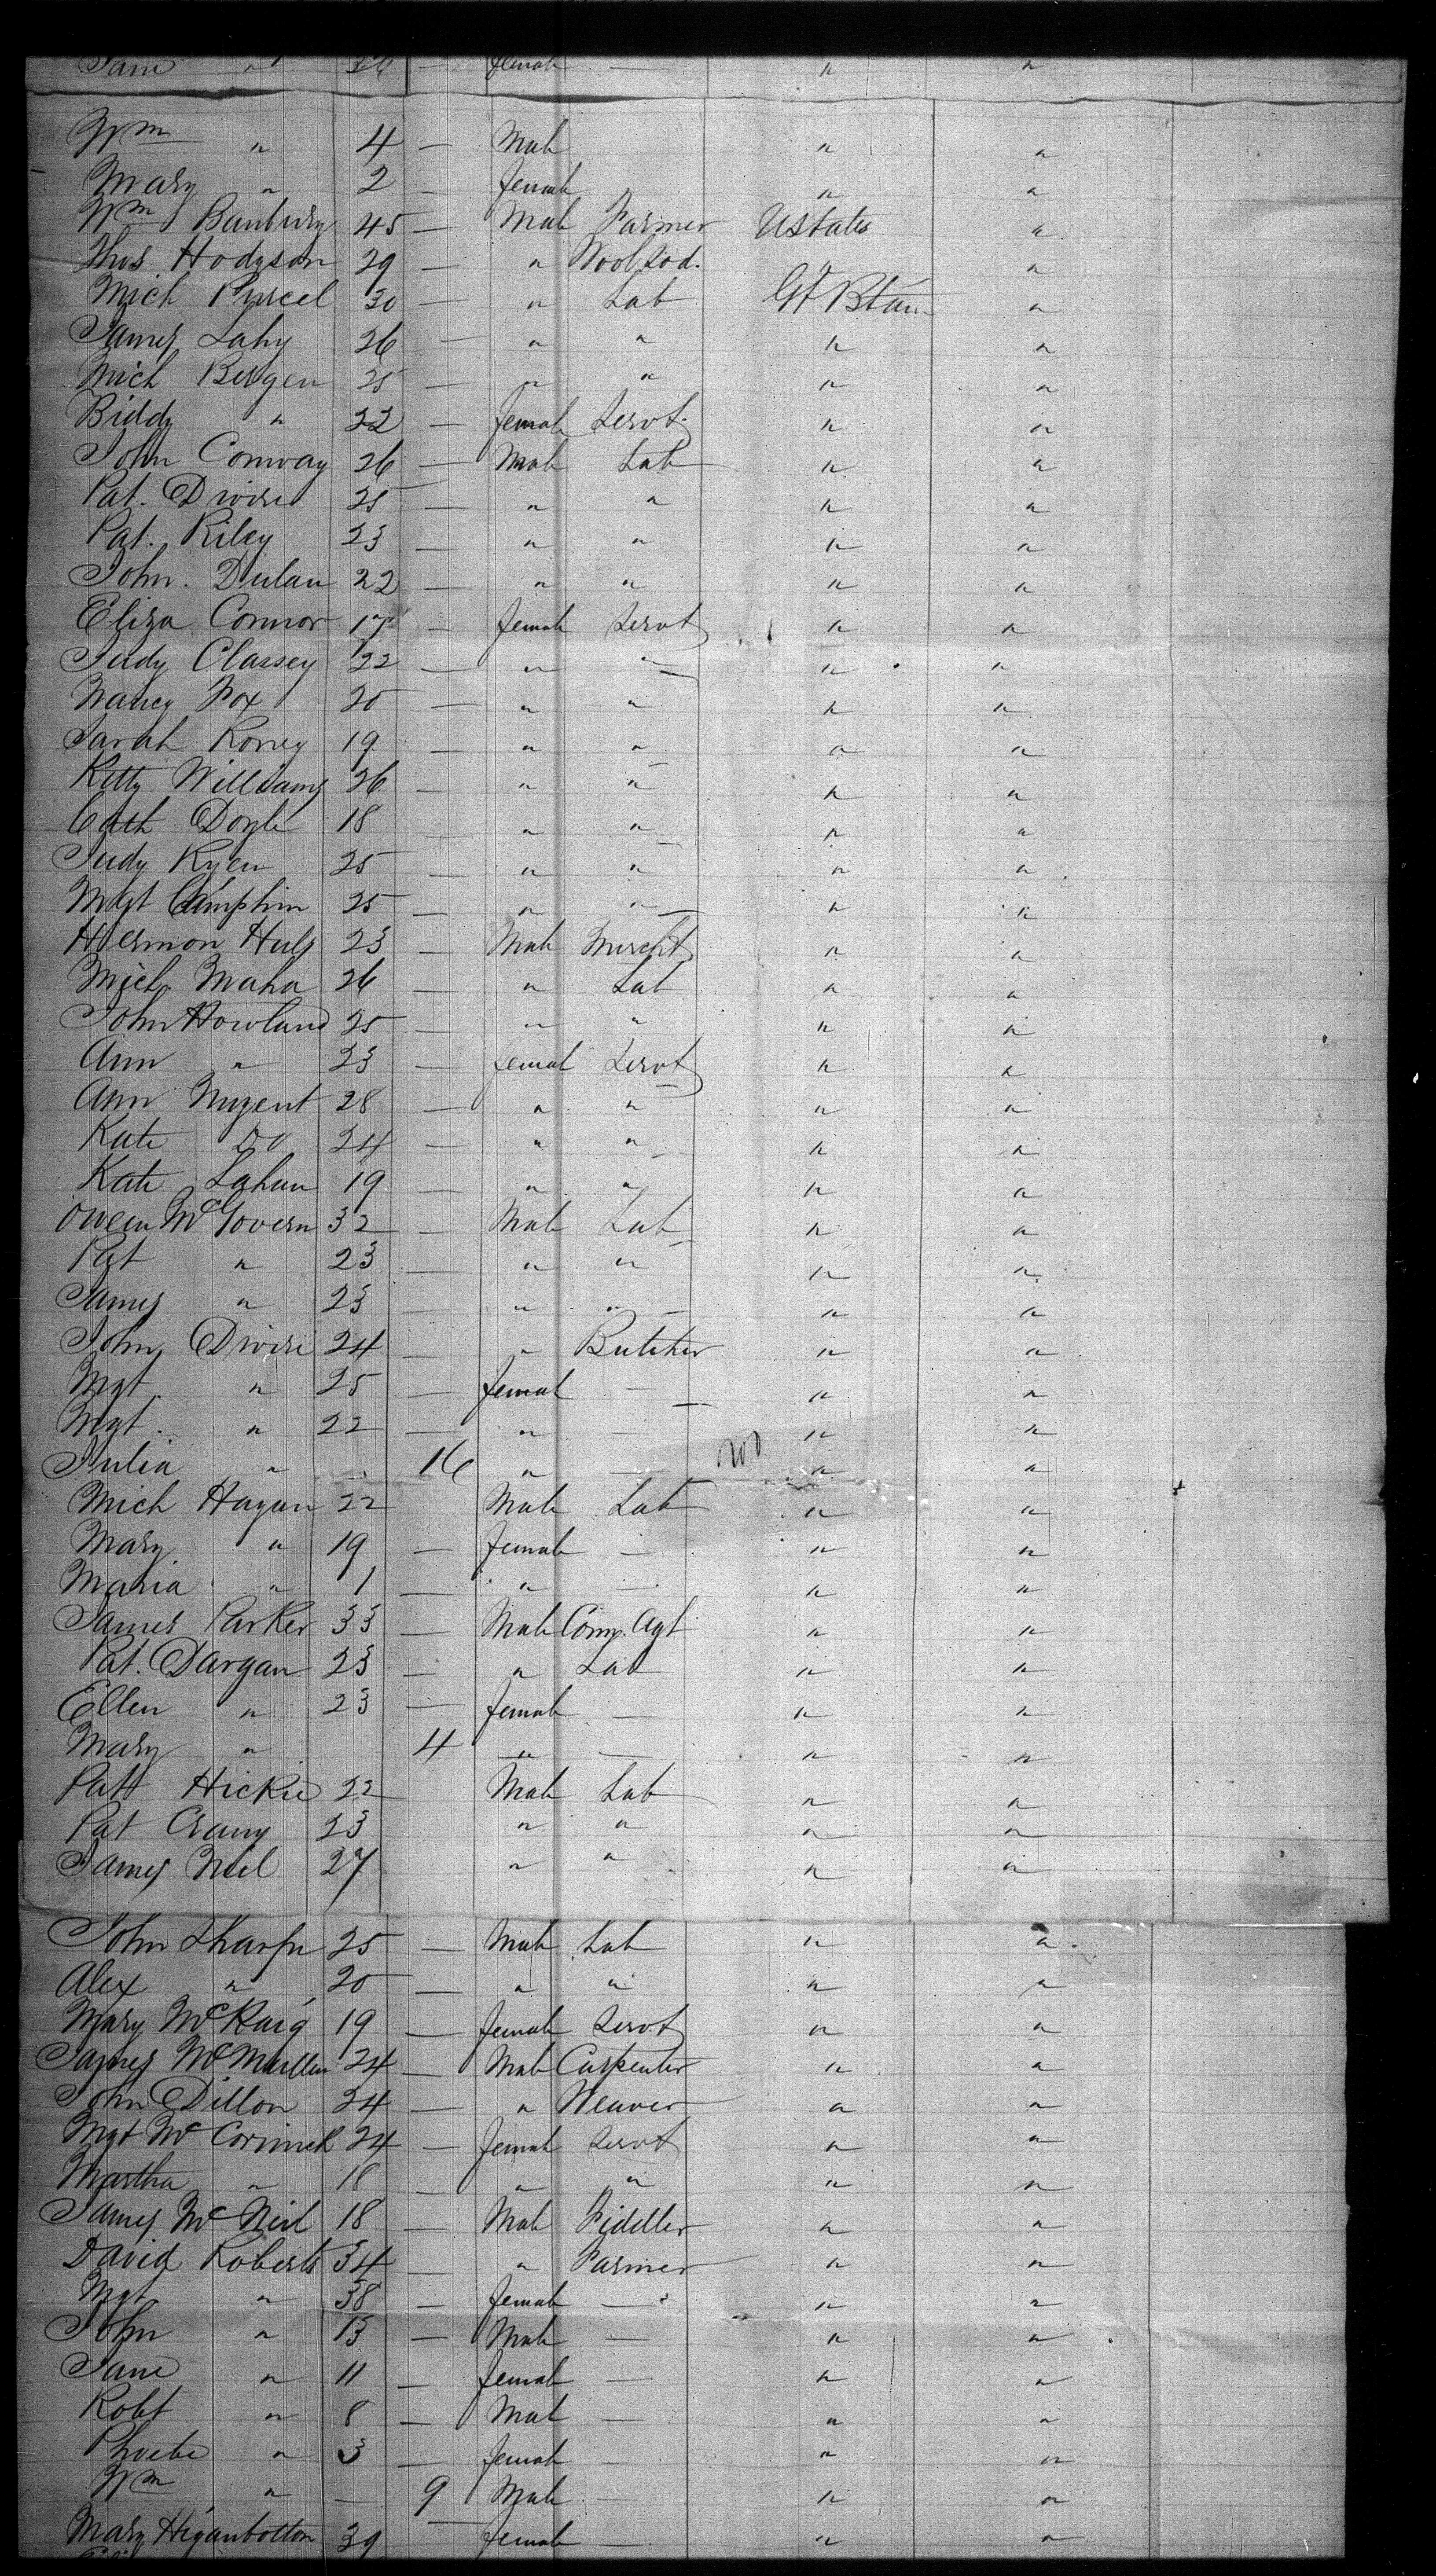 Jane " 26 — female — " "
Wm " 4 — Male " "
Mary " 2 — female " "
Wm Banbury 45 — Male Farmer Ustates "
Thos Hodgson 29 — " "  "
Mich Purcel 30 — " Lab Gt Btain "
James Lahy 26 — " " " "
Mich Bergen 25 — " " " "
Biddy " 22 — female Servt " "
John Conway 26 — Male Lab " "
Pat. Divire 25 — " " " "
Pat. Riley 23 — " " " "
John. Dulan 22 — " " " "
Eliza Connor 17 — female Servt " "
Judy Classey 22 — " " " "
Nancy Fox 20 — " " " "
Sarah Roney 19 — " " " "
Kitty Williams 26 — " " " "
Cath Doyle 18 — " " " "
Judy Ryen 25 — " " " "
Mgt Camphin 25 — " " " "
Hermon Huls 23 — Male Mercht " "
Mich Maha 26 — " Lab " "
John Howland 25 — " " " "
Ann " 23 — female Servt " "
Ann Nugent 28 — " " " "
Kate Do 24 — " " " "
Kate Lahan 19 — " " " "
Owen McGovern 32 — Male Lab " "
Pat " 23 — " " " "
James " 23 — " " " "
John Divire 24 — " Butcher " "
Mgt " 25 — female — " "
Mgt. " 22 — " — " "
Julia " 16 " — " "
Mich Hagan 22 Male Lab " "
Mary " 19 — female — " "
Maria " 1 — " — " "
James Parker 33 — Male Comg. Agt " "
Pat. Dargan 23 — " Lab " "
Ellen " 23 — female — " "
Mary " 4 " — " "
Patt Hickie 22 Male Lab " "
Pat Crany 23 " " " "
James Neil 27 " " " "
John Sharpe 25 — Male Lab " "
Alex " 20 — " " " "
Mary McKaig 19 — female Servt " "
James McMullen 24 — Male Carpenter " "
John Dillon 24 — " Weaver " "
Mgt McCormick 24 — female Servt " "
Martha " 18 — " " " "
James McNeil 18 — Male Fiddler " "
David Roberts 34 — " Farmer " "
Mgt " 38 — female — " "
John " 13 — Male — " "
Jane " 11 — female — " "
Robt " 8 — Male — " "
Phoebe " 3 — female — " "
Wm " — 9 Male — " "
Mary Higanbotton 39 — female — " "